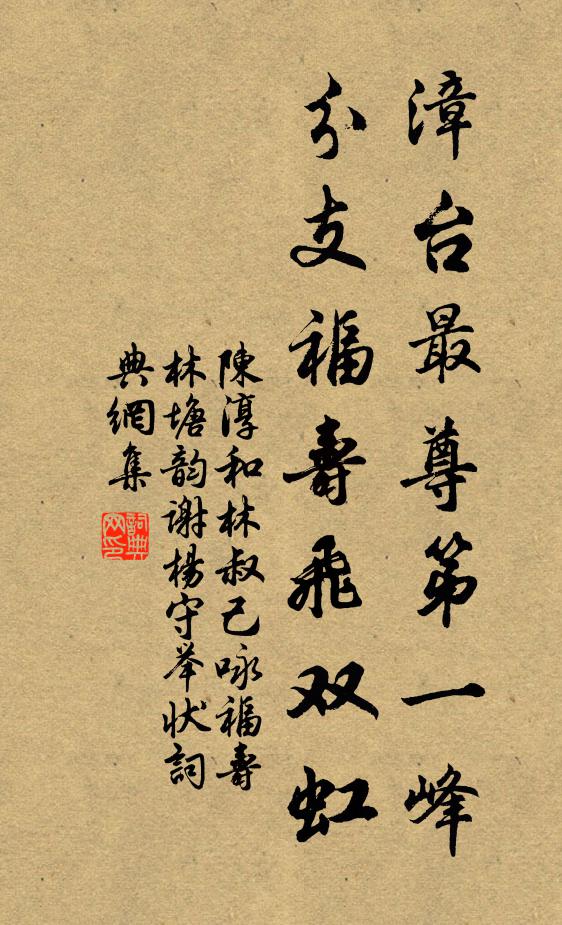 漳台最尊第一峰
分支福壽飛双虹
陳淳和林叔己咏福壽
林塘韵謝楊守举状詞
典網集
詞典网印